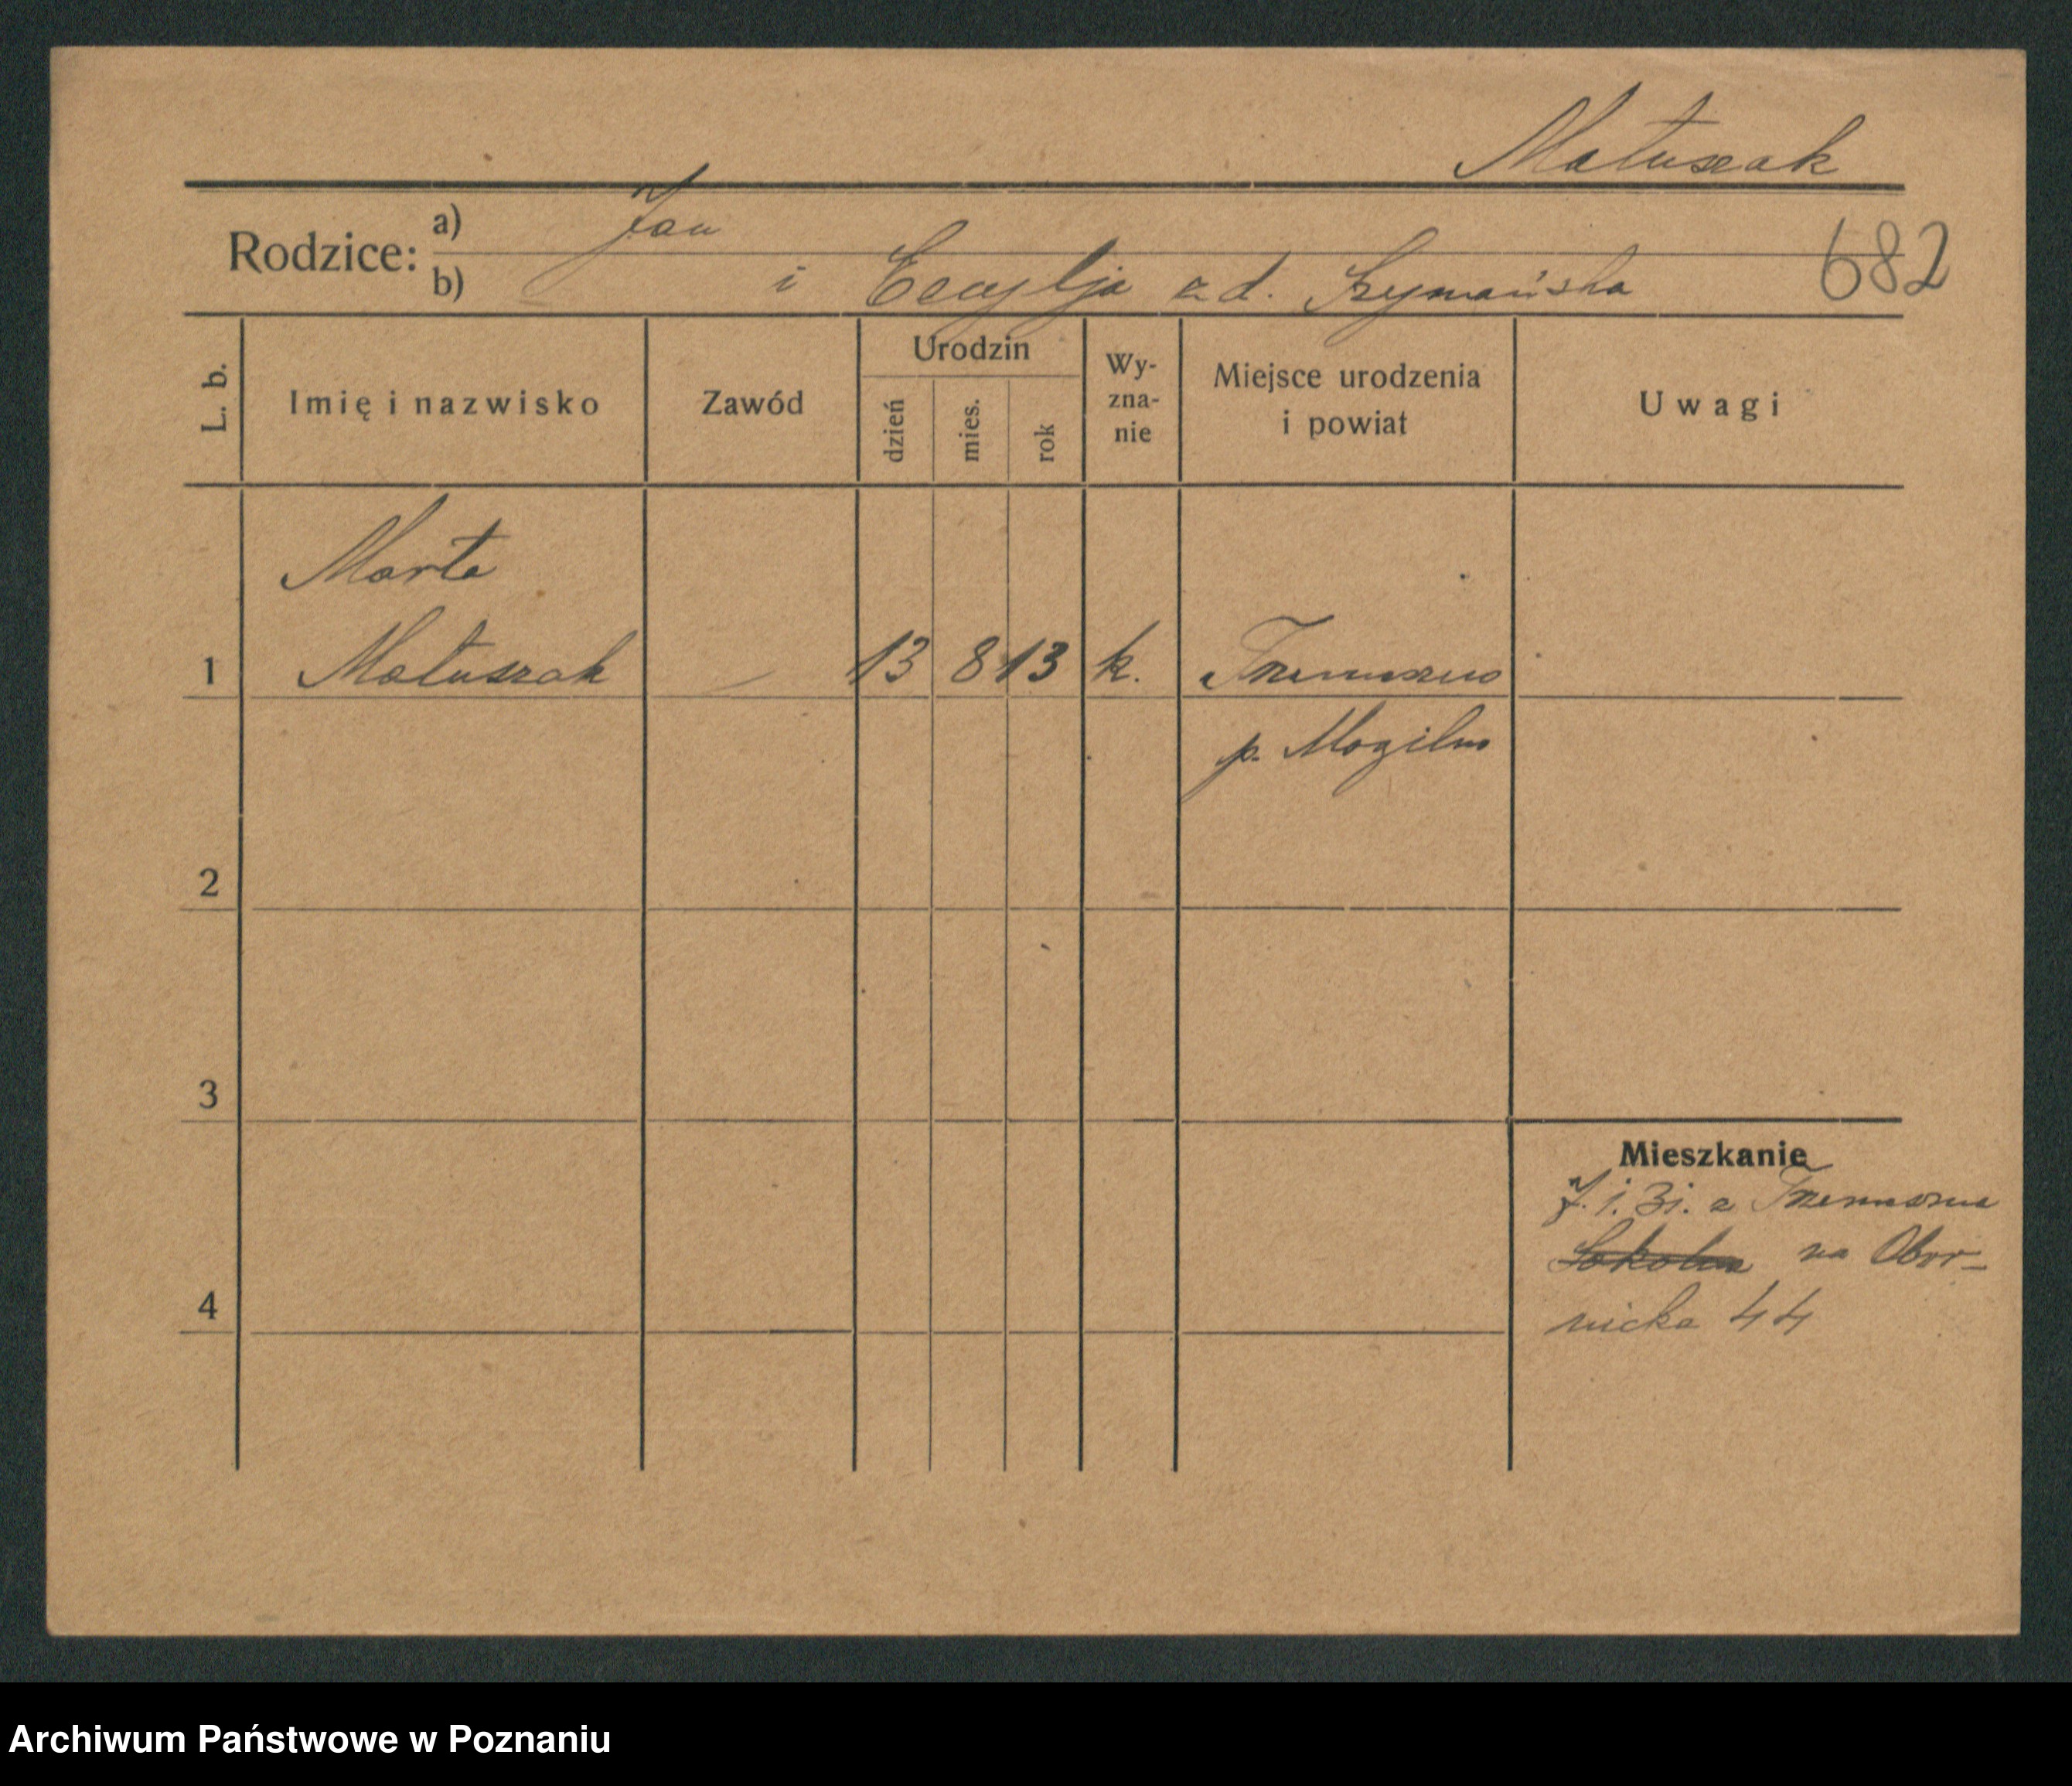 Matuszak
Rodzice: a) Jan
b) i Cecylja z d. Szymańska 682
L. b. Imię i nazwisko Zawód Urodzin dzień mies. rok Wy-zna-nie Miejsce urodzenia i powiat Uwagi
Marta
1 Matuszak 13 8 13 k. Trzemeszno
p. Mogilno
2
3
Mieszkanie
z Trzemeszna
na Obor-
4 nicka 44
Archiwum Państwowe w Poznaniu